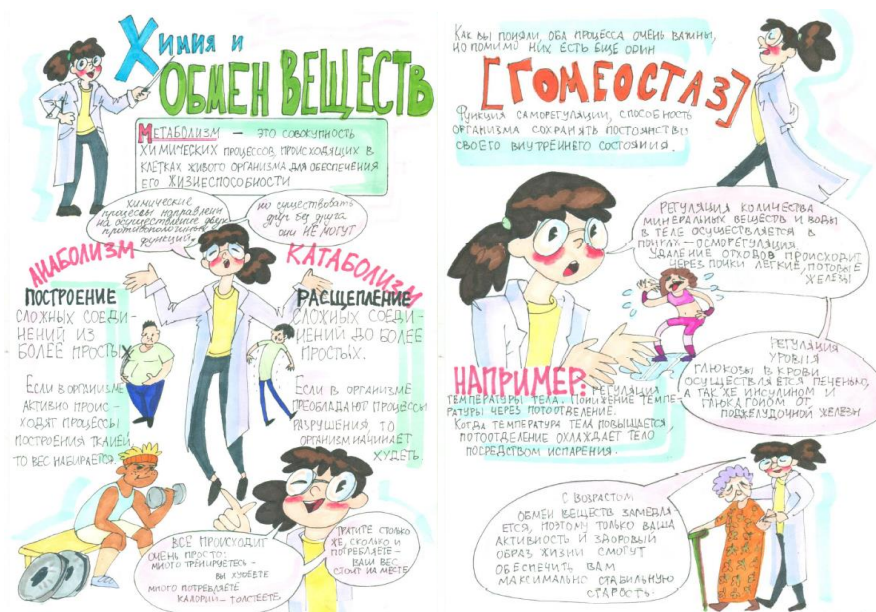 Химия и
ОБМЕН ВЕЩЕСТВ
Метаболизм — это совокупность
химических процессов, происходящих в
клетках живого организма для обеспечения
его жизнеспособности
химические
процессы направлены
на осуществление двух
противоположных
функций,
но существовать
друг без друга
они НЕ МОГУТ
АНАБОЛИЗМ
ПОСТРОЕНИЕ
СЛОЖНЫХ СОЕДИ-
НЕНИЙ ИЗ
БОЛЕЕ ПРОСТЫХ
Если в организме
активно проис-
ходят процессы
построения тканей,
то вес набирается.
КАТАБОЛИЗМ
РАСЩЕПЛЕНИЕ
СЛОЖНЫХ СОЕДИ-
НЕНИЙ ДО БОЛЕЕ
ПРОСТЫХ.
Если в организме
преобладают процессы
разрушения, то
организм начинает
худеть.
ВСЁ ПРОИСХОДИТ
ОЧЕНЬ ПРОСТО:
МНОГО ТРЕНИРУЕТЕСЬ —
ВЫ ХУДЕЕТЕ
МНОГО ПОТРЕБЛЯЕТЕ
КАЛОРИЙ — ТОЛСТЕЕТЕ
ТРАТИТЕ СТОЛЬКО
ЖЕ, СКОЛЬКО И
ПОТРЕБЛЯЕТЕ —
ВАШ ВЕС
СТОИТ НА МЕСТЕ
Как вы поняли, оба процесса очень важны,
но помимо них есть ещё один
[ГОМЕОСТАЗ]
Функция саморегуляции, способность
организма сохранять постоянство
своего внутреннего состояния.
РЕГУЛЯЦИЯ КОЛИЧЕСТВА
МИНЕРАЛЬНЫХ ВЕЩЕСТВ И ВОДЫ
В ТЕЛЕ ОСУЩЕСТВЛЯЕТСЯ В
ПОЧКАХ — ОСМОРЕГУЛЯЦИЯ.
УДАЛЕНИЕ ОТХОДОВ ПРОИСХОДИТ
ЧЕРЕЗ ПОЧКИ ЛЕГКИЕ, ПОТОВЫЕ
ЖЕЛЕЗЫ
РЕГУЛЯЦИЯ
УРОВНЯ
ГЛЮКОЗЫ В КРОВИ
ОСУЩЕСТВЛЯЕТСЯ ПЕЧЕНЬЮ,
А ТАК ЖЕ ИНСУЛИНОМ И
ГЛЮКАГОНОМ ОТ
ПОДЖЕЛУДОЧНОЙ ЖЕЛЕЗЫ
НАПРИМЕР: РЕГУЛЯЦИЯ
ТЕМПЕРАТУРЫ ТЕЛА. ПОНИЖЕНИЕ ТЕМПЕ-
РАТУРЫ ЧЕРЕЗ ПОТООТДЕЛЕНИЕ.
Когда температура тела повышается,
потоотделение охлаждает тело
посредством испарения.
С ВОЗРАСТОМ
ОБМЕН ВЕЩЕСТВ ЗАМЕДЛЯ-
ЕТСЯ, ПОЭТОМУ ТОЛЬКО ВАША
АКТИВНОСТЬ И ЗДОРОВЫЙ
ОБРАЗ ЖИЗНИ СМОГУТ
ОБЕСПЕЧИТЬ ВАМ
МАКСИМАЛЬНО СТАБИЛЬНУЮ
СТАРОСТЬ.